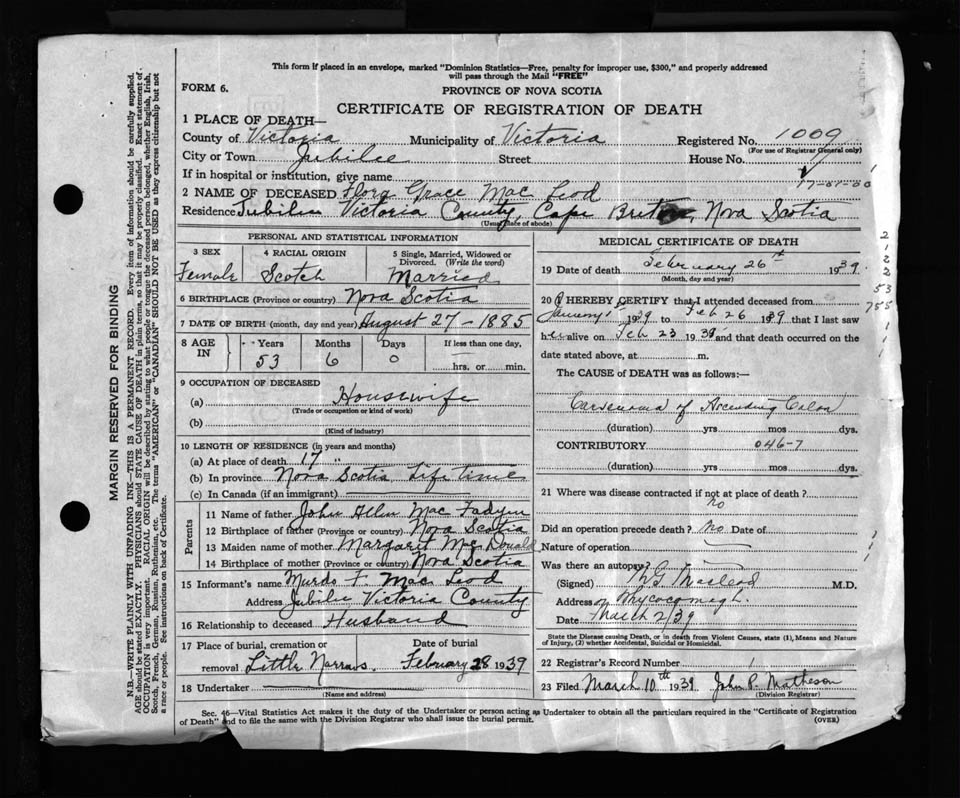 This form if placed in an envelope, marked "Dominion Statistics—Free, penalty for improper use, $300," and properly addressed
will pass through the Mail "FREE"
FORM 6.
PROVINCE OF NOVA SCOTIA
CERTIFICATE OF REGISTRATION OF DEATH
1 PLACE OF DEATH—
County of Victoria Municipality of Victoria Registered No. 1009
(For use of Registrar General only)
City or Town Jubilee Street House No.
If in hospital or institution, give name
17-87-80
2 NAME OF DECEASED Flora Grace Mac Leod
Residence Jubilee Victoria County, Cape Breton, Nova Scotia
(Usual place of abode)
PERSONAL AND STATISTICAL INFORMATION
3 SEX 4 RACIAL ORIGIN 5 Single, Married, Widowed or
Divorced. (Write the word)
Female Scotch Married
6 BIRTHPLACE (Province or country) Nova Scotia
7 DATE OF BIRTH (month, day and year) August 27-1885
8 AGE IN Years Months Days If less than one day,
53 6 0 hrs. or min.
9 OCCUPATION OF DECEASED
(a) Housewife
(Trade or occupation or kind of work)
(b)
(Kind of industry)
10 LENGTH OF RESIDENCE (in years and months)
(a) At place of death 17 "
(b) In province Nova Scotia Life time
(c) In Canada (if an immigrant)
Parents
11 Name of father John Allen Mac Fadyen
12 Birthplace of father (Province or country) Nova Scotia
13 Maiden name of mother Margaret Mac Donald
14 Birthplace of mother (Province or country) Nova Scotia
15 Informant's name Murdo F. Mac Leod
Address Jubilee Victoria County
16 Relationship to deceased Husband
17 Place of burial, cremation or Date of burial
removal Little Narrows. February 28 1939
18 Undertaker
(Name and address)
MEDICAL CERTIFICATE OF DEATH
19 Date of death February 26th 1939.
(Month, day and year)
20 I HEREBY CERTIFY that I attended deceased from
January 1st 1939 to Feb 26 1939 that I last saw
her alive on Feb 23 1939 and that death occurred on the
date stated above, at m.
The CAUSE of DEATH was as follows:—
Carcinoma of Ascending Colon
(duration) yrs mos dys.
CONTRIBUTORY 046-7
(duration) yrs mos dys.
21 Where was disease contracted if not at place of death?
no
Did an operation precede death? no Date of
Nature of operation
Was there an autopsy?
(Signed) Macleod M.D.
Address Whycocomagh.
Date March 2/39
State the Disease causing Death, or in death from Violent Causes, state (1), Means and Nature
of Injury, (2) whether Accidental, Suicidal or Homicidal.
22 Registrar's Record Number 1
23 Filed March 10th 1939 John P. Matheson
(Division Registrar)
Sec. 46—Vital Statistics Act makes it the duty of the Undertaker or person acting as Undertaker to obtain all the particulars required in the "Certificate of Registration
of Death" and to file the same with the Division Registrar who shall issue the burial permit.
(OVER)
MARGIN RESERVED FOR BINDING
N.B.—WRITE PLAINLY WITH UNFADING INK—THIS IS A PERMANENT RECORD. Every item of information should be carefully supplied.
AGE should be stated EXACTLY. PHYSICIANS should STATE CAUSE OF DEATH in plain terms, so that it may be properly classified. Exact statement of
OCCUPATION is very important. RACIAL ORIGIN will be described by stating to what people or tongue the deceased person belonged, whether English, Irish,
Scotch, French, German, Russian, Ruthenian, etc. The terms "AMERICAN" or "CANADIAN" SHOULD NOT BE USED as they express citizenship but not
a race or people. See instructions on back of Certificate.
2
1
2
2
53
755